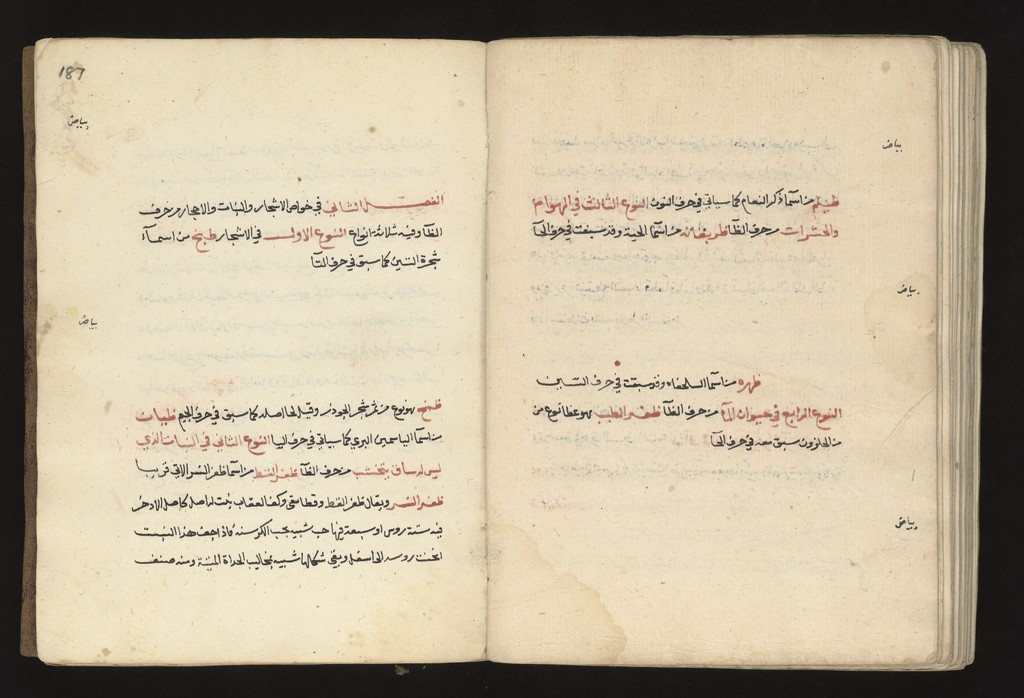 بياض
ظليم من اسما ذكر النعام كما سياتي في حرف النون النوع الثالث في الهوام
والحشرات من حرف الظا من اسما الحية وقد سبقت في حرف الحا
بياض
ظهره من اسما السلحفاه وقد سبقة في حرف السين
النوع الرابع في حيوان الما من حرف الظا ظفر الطيب هو عطا نوع من
من الحلزون سبق معه في حرف الحا
بياض
187
بياض
الفصل الثاني في خواص الاشجار والنبات والاحجار من حرف
الظا وفيه ثلاثة انواع النوع الاول في الاشجار من اسمآء
شجرة التين كما سبق في حرف التا
بياض
هو نوع من ثمر شجر وقيل لحا اصله كما سبق في حرف الجيم ظيان
من اسما الياسمين البري كما سياتي في حرف اليا النوع الثاني في النبات الذي
ليس له ساق يتخشب من حرف الظا ظفر القط من اسما ظفر النسر الاتي قريبا
ظفر النسر ويقال ظفر القط وكف العقاب نبت له اصل كاصل الاذخر
فيه ستة روس او سبعة فيها حب شبيه بحب الكرسنه فاذا جف هذا النبت
انحنت روسه الى اسفل وبقي شكلها شبيه بمخاليب الحداة الميتة ومنه صنف